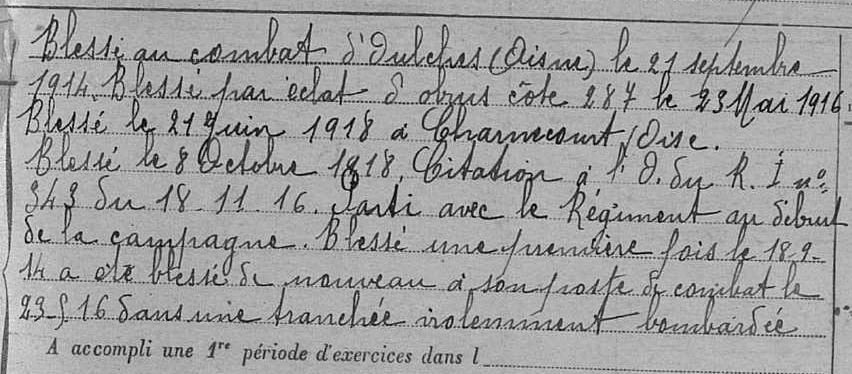 Blessé au combat d'Oulches (Aisne) le 21 septembre
1914. Blessé par éclat d'obus côte 287 le 23 Mai 1916
Blessé le 21 Juin 1918 à Charnecourt, Oise.
Blessé le 8 Octobre 1918. Citation à l'O. du R. I n°
343 du 18.11.16. Parti avec le Régiment au début
de la campagne. Blessé une première fois le 18-9-
14 a été blessé de nouveau à son poste de combat le
23-5 16 dans une tranchée violemment bombardée
A accompli une 1re période d'exercices dans l